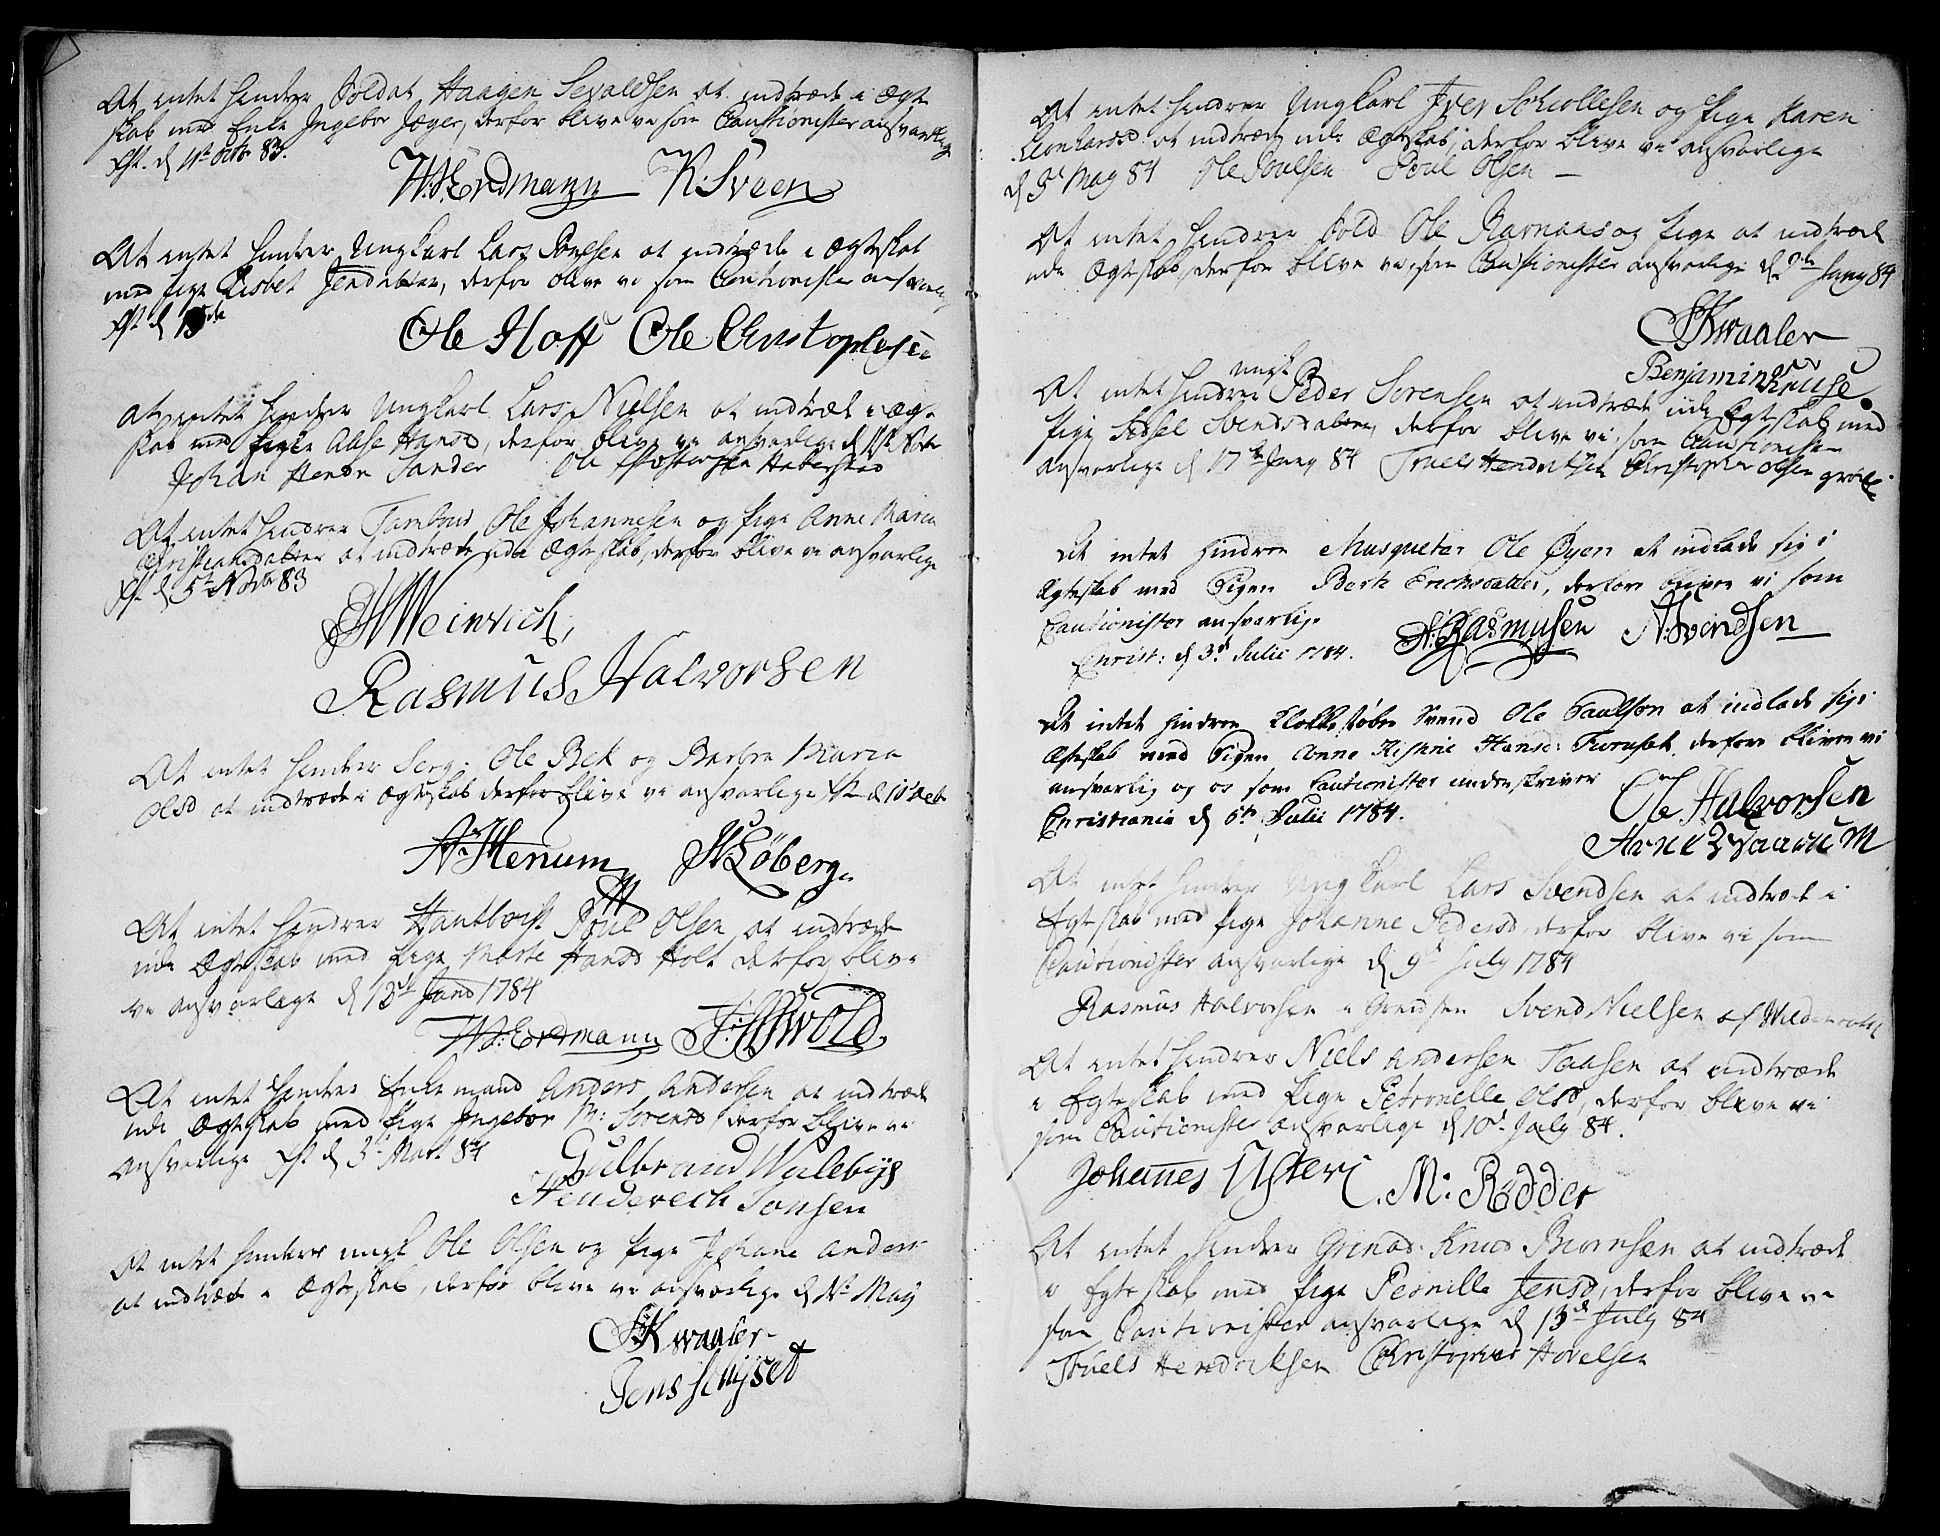 At intet hindrer Soldat Haagen Sevaldsen at indtræde i Ægte
skab med Enke Ingebor Jæger, derfor blive vi som Cautionister ansvarlig
Xst. d 11te Octb 83.
W. Erdmann K: Sveen
At intet hindrer Ungkarl Lars Poulsen at indtræde i Ægteskab
med Pige Lisbet Jensdatter, derfor blive vi som Cautionister ansvarlig
Xst d
Ole Hoff Ole Christophersen
At intet hindrer Ungkarl Lars Nielsen at indtræde i Ægte
skab med Pigen Alise Hansd, derfor blive vi ansvarlige d
Johan Hendr Sander Ole
At intet hindrer Tambour Ole Johannesen og Pige Anne Maria
Christiansdatter at indtræde udi Ægteskab, derfor blive vi ansvarlige
Xst d 5te Novbr 83
H Weinrich,
Rasmus Halvorsen
At intet hindrer Serg: Ole Bek og Barbra Maria
Olsd at indtræde i Ægteskab derfor blive vi ansvarlige Xst d 10 Decb
A: Stenum H: Løberg.
At intet hindrer Hautboist Poul Olsen at indtræde
udi Ægteskab med Pige Marte Hansd Holt derfor blive
vi ansvarlige d 13de Janv 1784
W: Erdmann
At intet hindrer Enkemand Anders Andersen at indtræde
udi Ægteskab med Pige Ingebor M: Sørensd derfor blive vi
ansvarlige Xst d 3die Mart 84
Gulbrand Walebye
Henderech Jonsen
At intet hindrer ungk Ole Olsen og Pige Johane Anders
at indtræde i Ægteskab, derfor blive vi ansvarlige d 1st May
Kwaaler
Jens
At intet hindrer Ungkarl Iver Schiollesen og Pige Karen
Leonhardsd at indtræde udi Ægteskab, derfor blive vi ansvarlige
d 3de May 84 Ole Poulsen Poul Olsen
At intet hindrer Sold Ole Ravnaas og Pige at indtræde
udi Ægteskab, derfor blive vi som Cautionister ansvarlige d 2de Juny 84
Kwaaler
Benjamin Kruse
At intet hindrer ungk Peder Sørensen at indtræde udi Egteskab med
Pige Sidsel Svendsdatter, derfor blive vi som Cautionister
ansvarlige d 17de Juny 84 Truels Hendriksen Christopher Olsen
At intet hindrer Musqueter Ole Øyen at indlade sig i
Ægteskab med Pigen Berte Erichsdatter, derfore bliver vi som
Cautionister ansvarlige
Christ: d 3d Julii 1784. A: Rasmusen A: Svendsen
At intet hindrer Klokkestøber Svend Ole Paulson at indlade sig i
Ægteskab med Pigen Anne Hansd: derfore bliver vi
ansvarlig og os som Cautionister underskriver
Christiania d 6te Julii 1784.
Ole Halvorsen
Arne
At intet hindrer Ungkarl Lars Svendsen at indtræde i
Egteskab med Pige Johanne Pedersd derfor blive vi som
Cautionister ansvarlige d 9d July 1784
Rasmus Halvorsen i Grendsen Svend Nielsen af
At intet hindrer Niels Andersen Taasen at indtræde
i Egteskab med Pige Petronelle Olsd, derfor blive vi
som Cautionister ansvarlige d 10d July 84.
Johannes C. M: Rødder
At intet hindrer Grenad: Knud Biørnsen at indtræde
i Egteskab med Pige Pernille Jensd, derfor blive vi
som Cautionister ansvarlige d 13d July 84
Truels Hendriksen Christopher Hovelsen